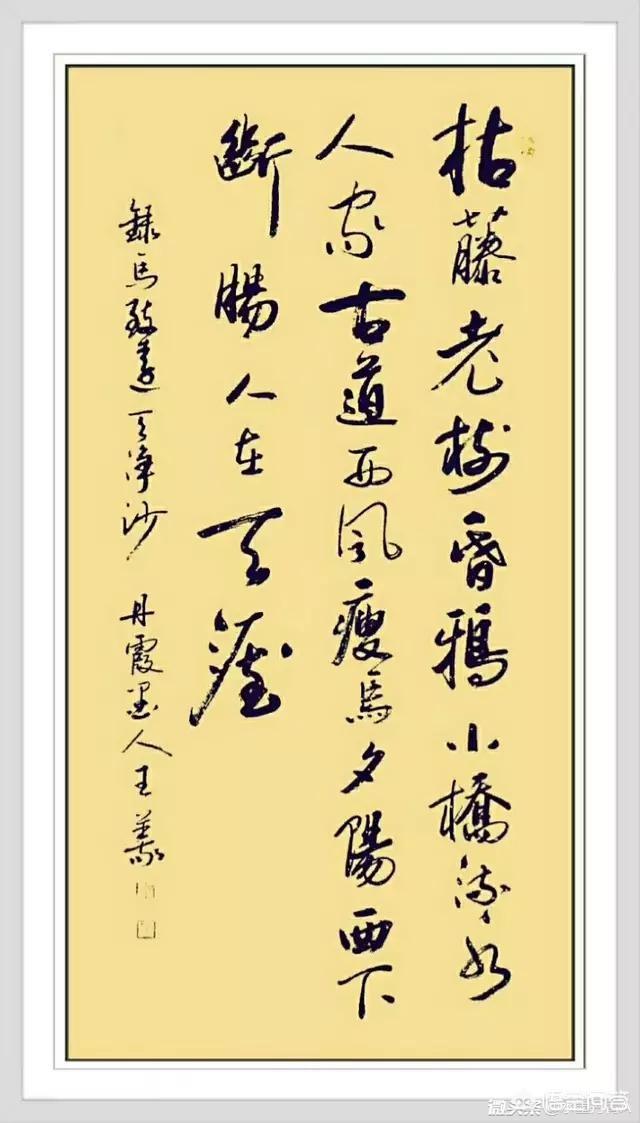 枯藤老樹昏鴉小橋流水
人家古道西風瘦馬夕陽西下
斷腸人在天涯
錄馬致遠天淨沙 丹霞墨人王